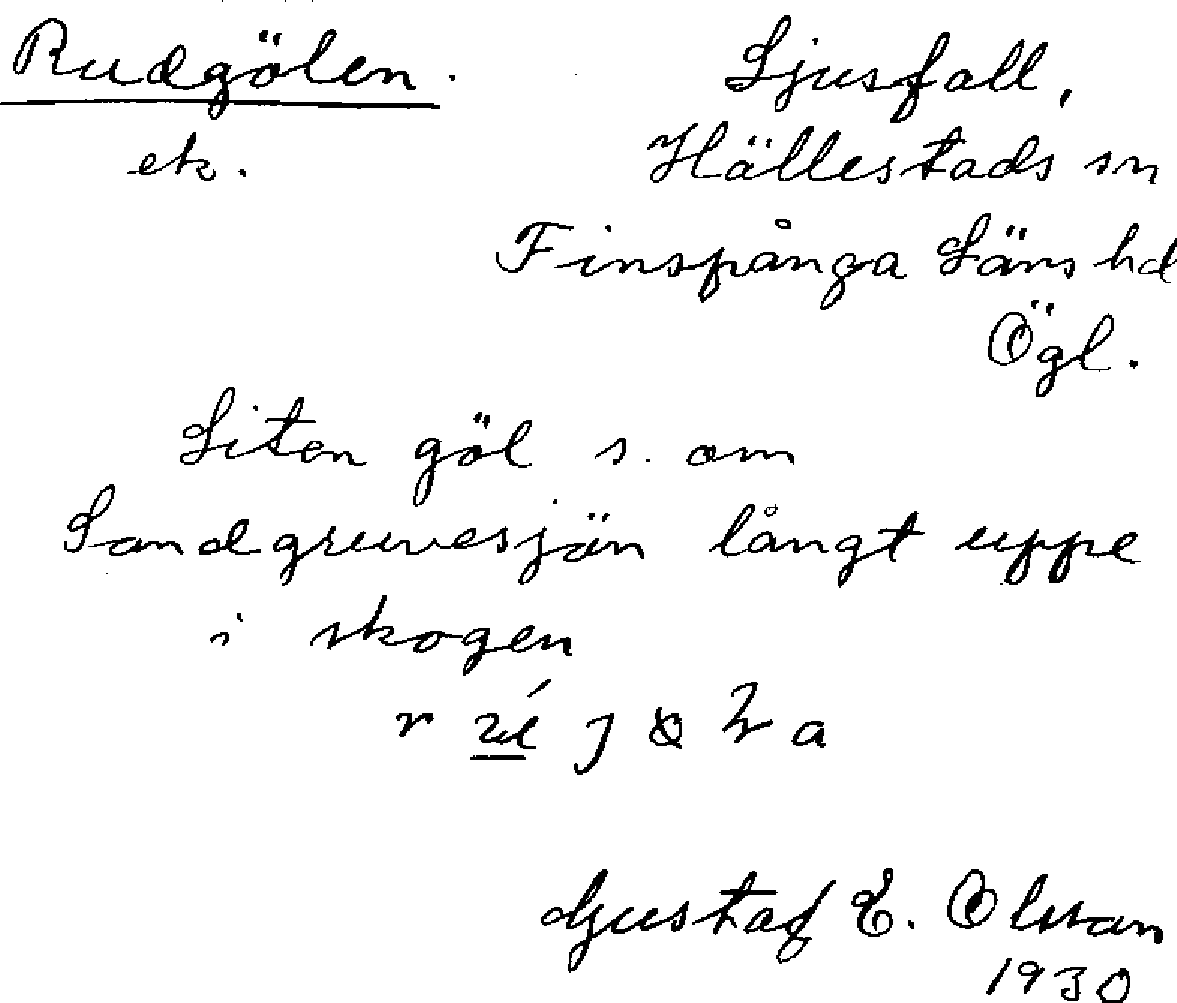 Rudgölen.
ek.
Ljusfall,
Hällestads sn
Finspånga Läns hd
Ögl.
Liten göl s. om
Sandgruvesjön långt uppe
i skogen
Gustaf E. Olsson
1930